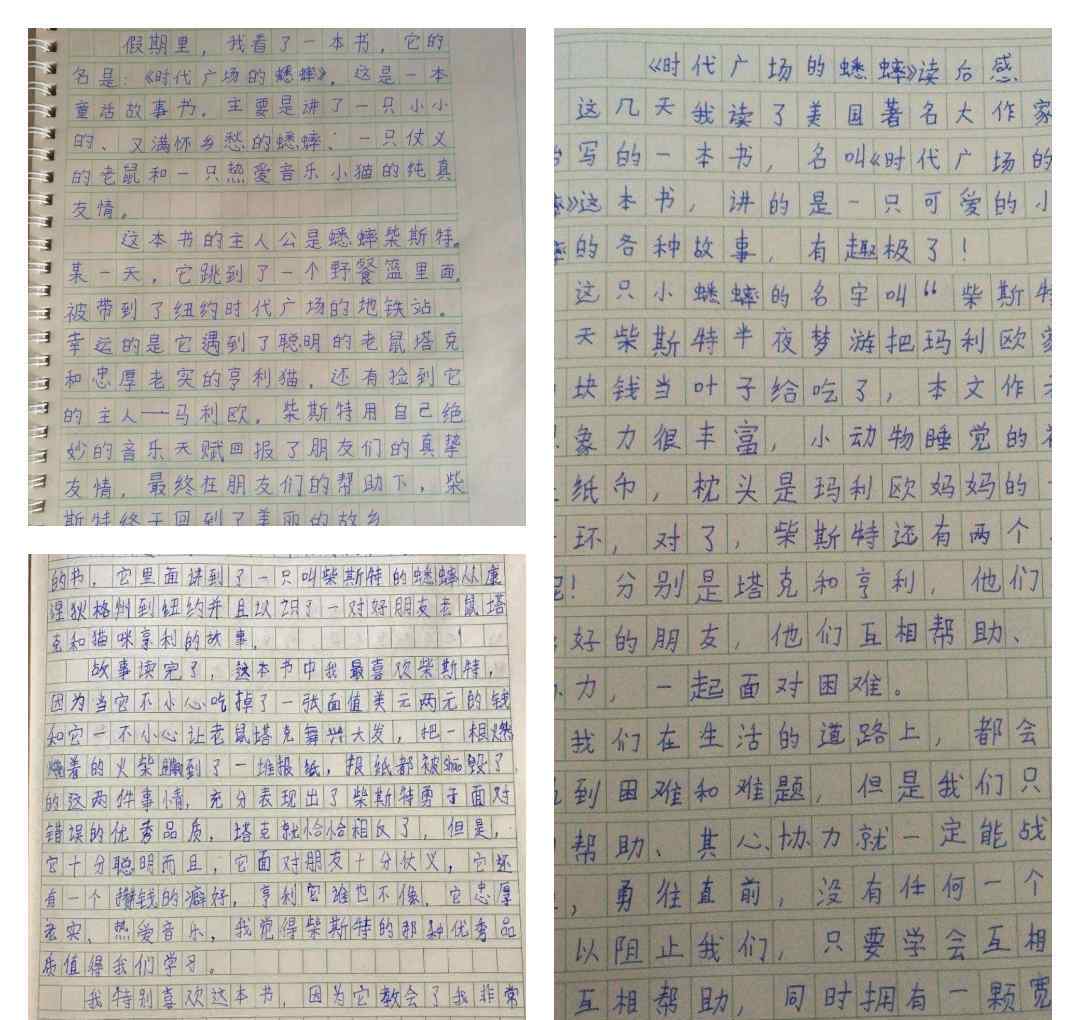 假期里，我看了一本书，它的
名是：《时代广场的蟋蟀》，这是一本
童话故事书。主要是讲了一只小小
的、又满怀乡愁的蟋蟀；一只仗义
的老鼠和一只热爱音乐小猫的纯真
友情。
这本书的主人公是蟋蟀柴斯特。
某一天，它跳到了一个野餐篮里面，
被带到了纽约时代广场的地铁站。
幸运的是它遇到了聪明的老鼠塔克
和忠厚老实的亨利猫，还有捡到它
的主人——马利欧。柴斯特用自己绝
妙的音乐天赋回报了朋友们的真挚
友情，最终在朋友们的帮助下，柴
斯特终于回到了美丽的故乡
的书，它里面讲到了一只叫柴斯特的蟋蟀从康
涅狄格州到纽约并且以识了一对好朋友老鼠塔
克和猫咪亨利的故事。
故事读完了，这本书中我最喜欢柴斯特，
因为当它不小心吃掉了一张面值美元两元的钱
和它一不小心让老鼠塔克舞兴大发，把一根燃
烧着的火柴蹦到了一堆报纸，报纸都被毁了
的这两件事情，充分表现出了柴斯特勇于面对
错误的优秀品质，塔克就恰恰相反了，但是，
它十分聪明而且，它面对朋友十分仗义，它还
有一个攒钱的癖好，亨利它谁也不像，它忠厚
老实、热爱音乐，我觉得柴斯特的那种优秀品
质值得我们学习。
我特别喜欢这本书，因为它教会了我非常
《时代广场的蟋蟀》读后感
这几天我读了美国著名大作家
写的一本书，名叫《时代广场的
》这本书，讲的是一只可爱的小
的各种故事，有趣极了！
这只小蟋蟀的名字叫“柴斯特
天柴斯特半夜梦游把玛利欧家
块钱当叶子给吃了，本文作者
象力很丰富，小动物睡觉的
纸币，枕头是玛利欧妈妈的
环，对了，柴斯特还有两个
吧！分别是塔克和亨利，他们
好的朋友，他们互相帮助、
力，一起面对困难。
我们在生活的道路上，都会
到困难和难题，但是我们只
帮助、其心协力就一定能战
，勇往直前，没有任何一个
以阻止我们，只要学会互相
互相帮助，同时拥有一颗宽